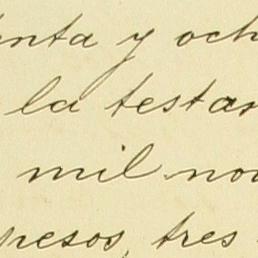 enta y och
la testa
mil no
pesos, tres